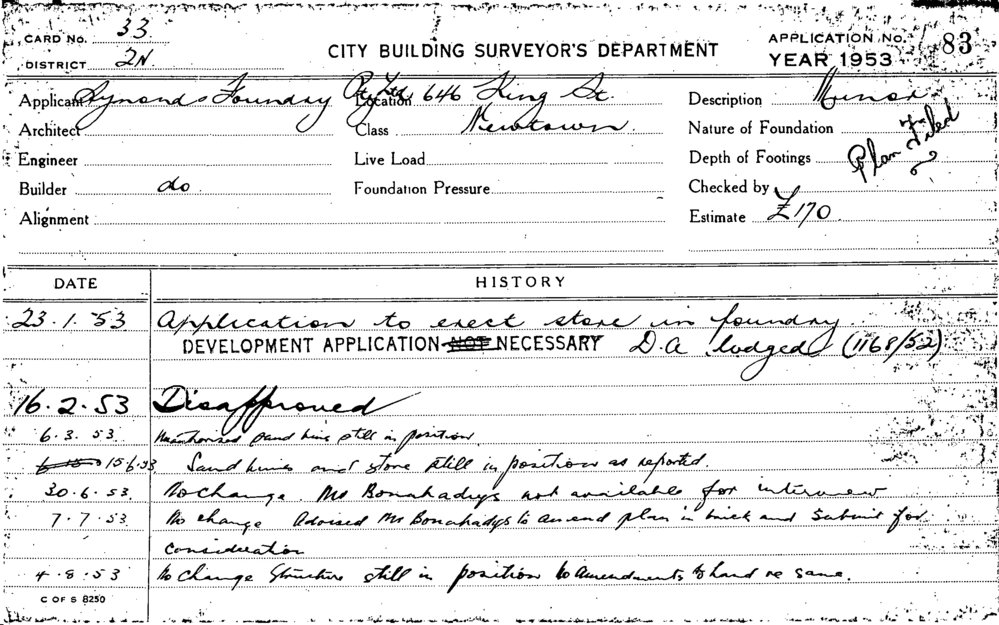 CARD No. 33
DISTRICT 2N
CITY BUILDING SURVEYOR'S DEPARTMENT
APPLICATION No. 83
YEAR 1953
Applicant Symonds Foundry Pty Ltd.
Location 646 King St.
Description Minor
Architect
Class Newtown.
Nature of Foundation
Engineer
Live Load
Depth of Footings
Plan Filed
Builder do
Foundation Pressure
Checked by
Alignment
Estimate £170
DATE HISTORY
23.1.53 Application to erect store in foundry
DEVELOPMENT APPLICATION NOT NECESSARY D.A lodged (1168/52)
16.2.53 Disapproved
6.3.53. Unauthorised sand bins still in position.
15.6.53 Sand bins and store still in position as reported.
30.6.53. No change. Mr Bonahadys not available for interview
7.7.53 No change Advised Mr Bonahadys to amend plan in brick and submit for
consideration
4.8.53 No change Structure still in position No amendments to hand re same.
C OF S 8250